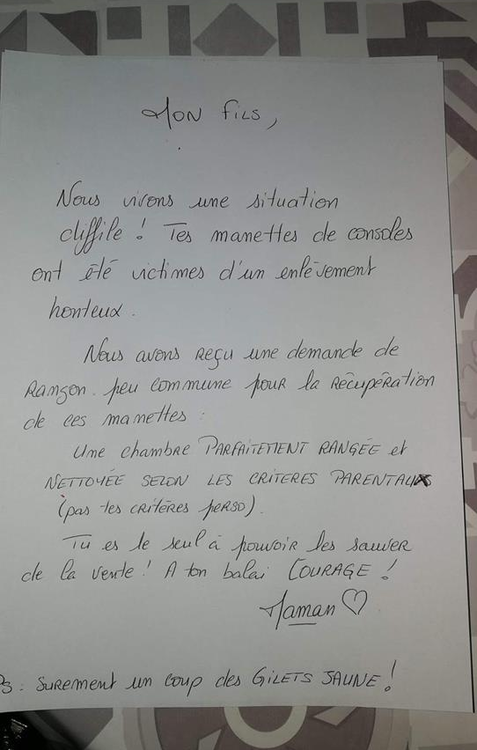 Mon fils,
Nous vivons une situation
diffile ! Tes manettes de consoles
ont été victimes d'un enlèvement
honteux.
Nous avons reçu une demande de
rançon peu commune pour la récupération
de ces manettes :
Une chambre PARFAITEMENT RANGÉE et
NETTOYÉE SELON LES CRITERES PARENTAUX
(pas tes critères perso).
Tu es le seul à pouvoir les sauver
de la vente ! A ton balai COURAGE !
Maman ♡
PS : Surement un coup des GILETS JAUNE !